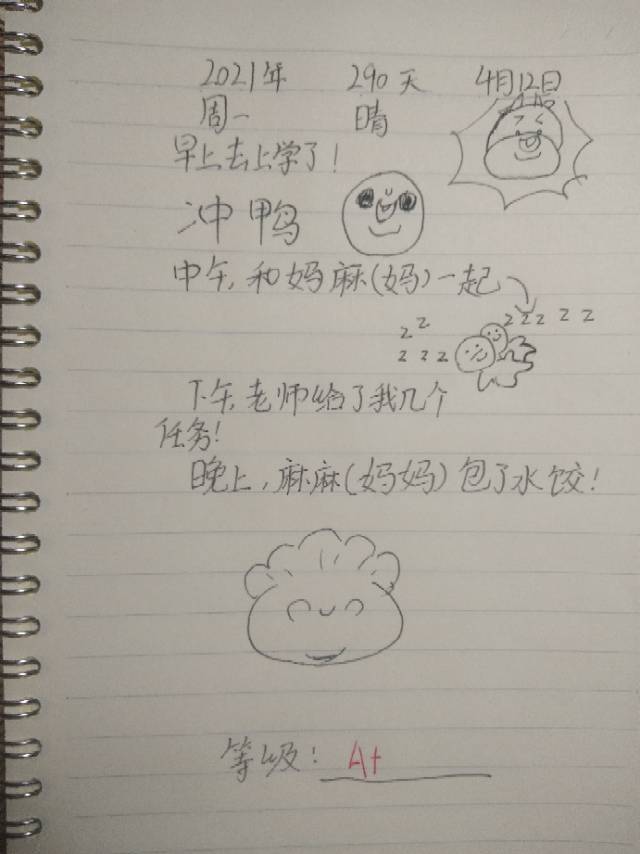 2021年 290天 4月12日
周一 晴
早上去上学了！
冲鸭
中午,和妈麻(妈)一起
z z z z z z z
z z z
下午,老师给了我几个
任务！
晚上,麻麻(妈妈)包了水饺！
等级：A+